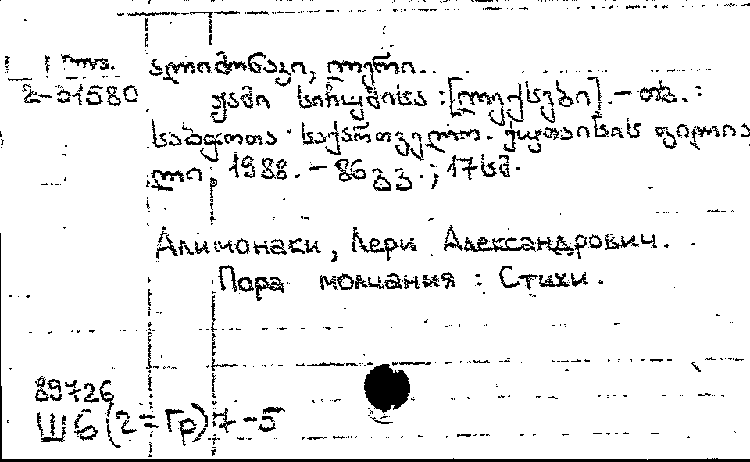 ალიმონაკი, ლერი.
2-31580 ჟამი სიჩუმისა : [ლექსები]. – თბ. :
საბჭოთა საქართველო. ქუთაისის ფილია
ლი, 1988. – 86 გვ. ; 17 სმ.
Алимонаки, Лери Александрович.
Пора молчания : Стихи.
89726
Ш6(2=Гр)7-5